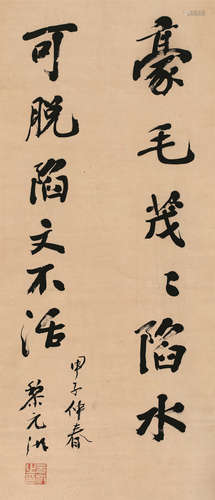 豪毛茂〻陷水
可脱陷文不活
甲子仲春
黎元洪